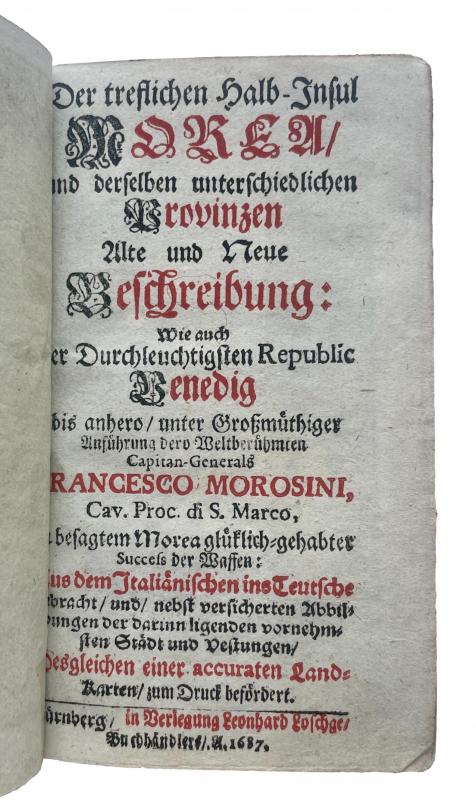 Der treflichen Halb-Insul
MOREA/
und derselben unterschiedlichen
Provinzen
Alte und Neue
Beschreibung:
Wie auch
er Durchleuchtigsten Republic
Venedig
bis anhero/ unter Großmüthiger
Anführung dero Weltberühmten
Capitan-Generals
RANCESCO MOROSINI,
Cav. Proc. di S. Marco,
besagtem Morea glüklich-gehabter
Success der Waffen:
us dem Italiänischen ins Teutsche
bracht/ und/ nebst versicherten Abbil-
ungen der darinn ligenden vornehm-
sten Städt und Vestungen/
Desgleichen einer accuraten Land-
Karten/ zum Druck befördert.
ürnberg/ in Verlegung Leonhard Loschge/
Buchhändlers/. A. 1687.